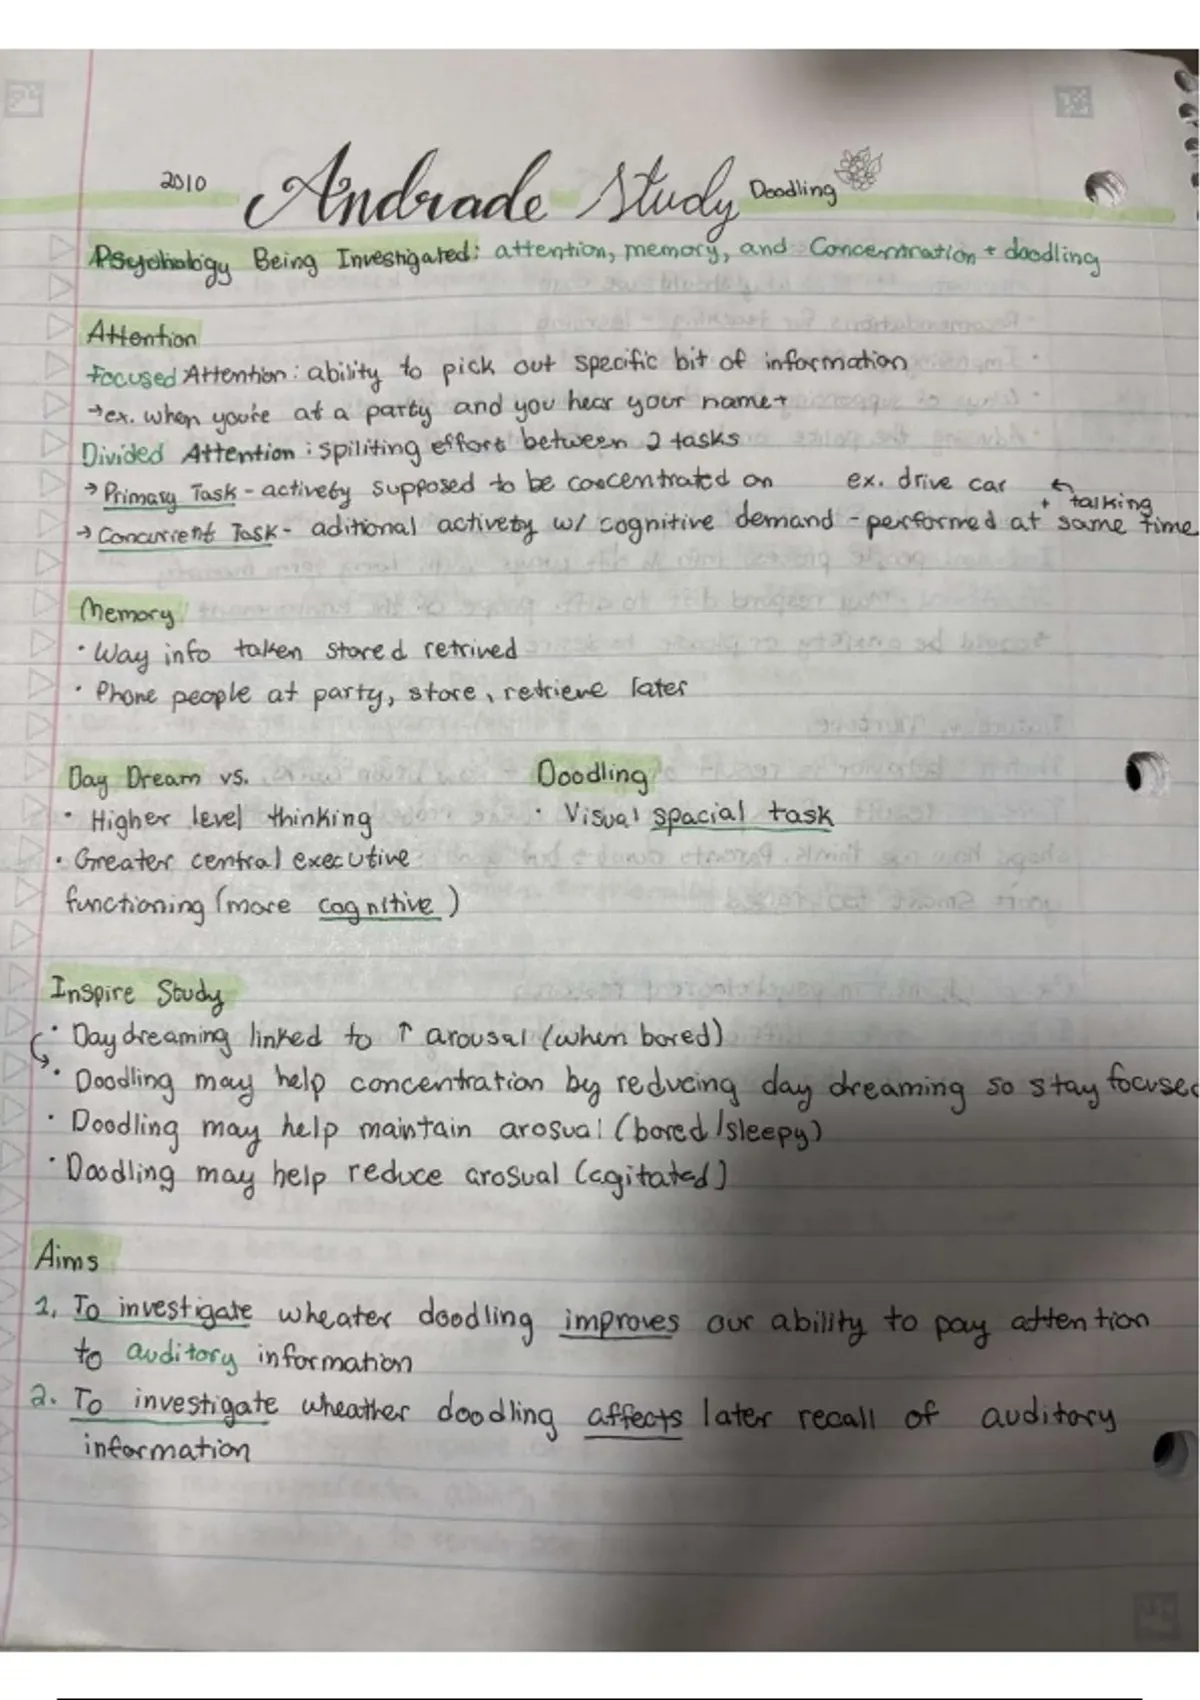 2010 Andrade Study Doodling
Psychology Being Investigated: attention, memory, and Concentration + doodling
Attention
Focused Attention: ability to pick out specific bit of information
→ex. when you're at a party and you hear your name+
Divided Attention: spiliting effort between 2 tasks
→ Primary Task - activety supposed to be concentrated on ex. drive car
+ talking
→ Concurrent Task - aditional activety w/ cognitive demand - performed at same time
Memory
• Way info taken stored retrived
• Phone people at party, store, retrieve later
Day Dream vs. Doodling
• Higher level thinking • Visual spacial task
• Greater central executive
functioning (more cognitive)
Inspire Study
• Day dreaming linked to ↑ arousal (when bored)
• Doodling may help concentration by reducing day dreaming so stay focused
• Doodling may help maintain arosual (bored/sleepy)
• Doodling may help reduce arosual (agitated)
Aims
1. To investigate wheater doodling improves our ability to pay attention
to auditory information
2. To investigate wheather doodling affects later recall of auditory
information